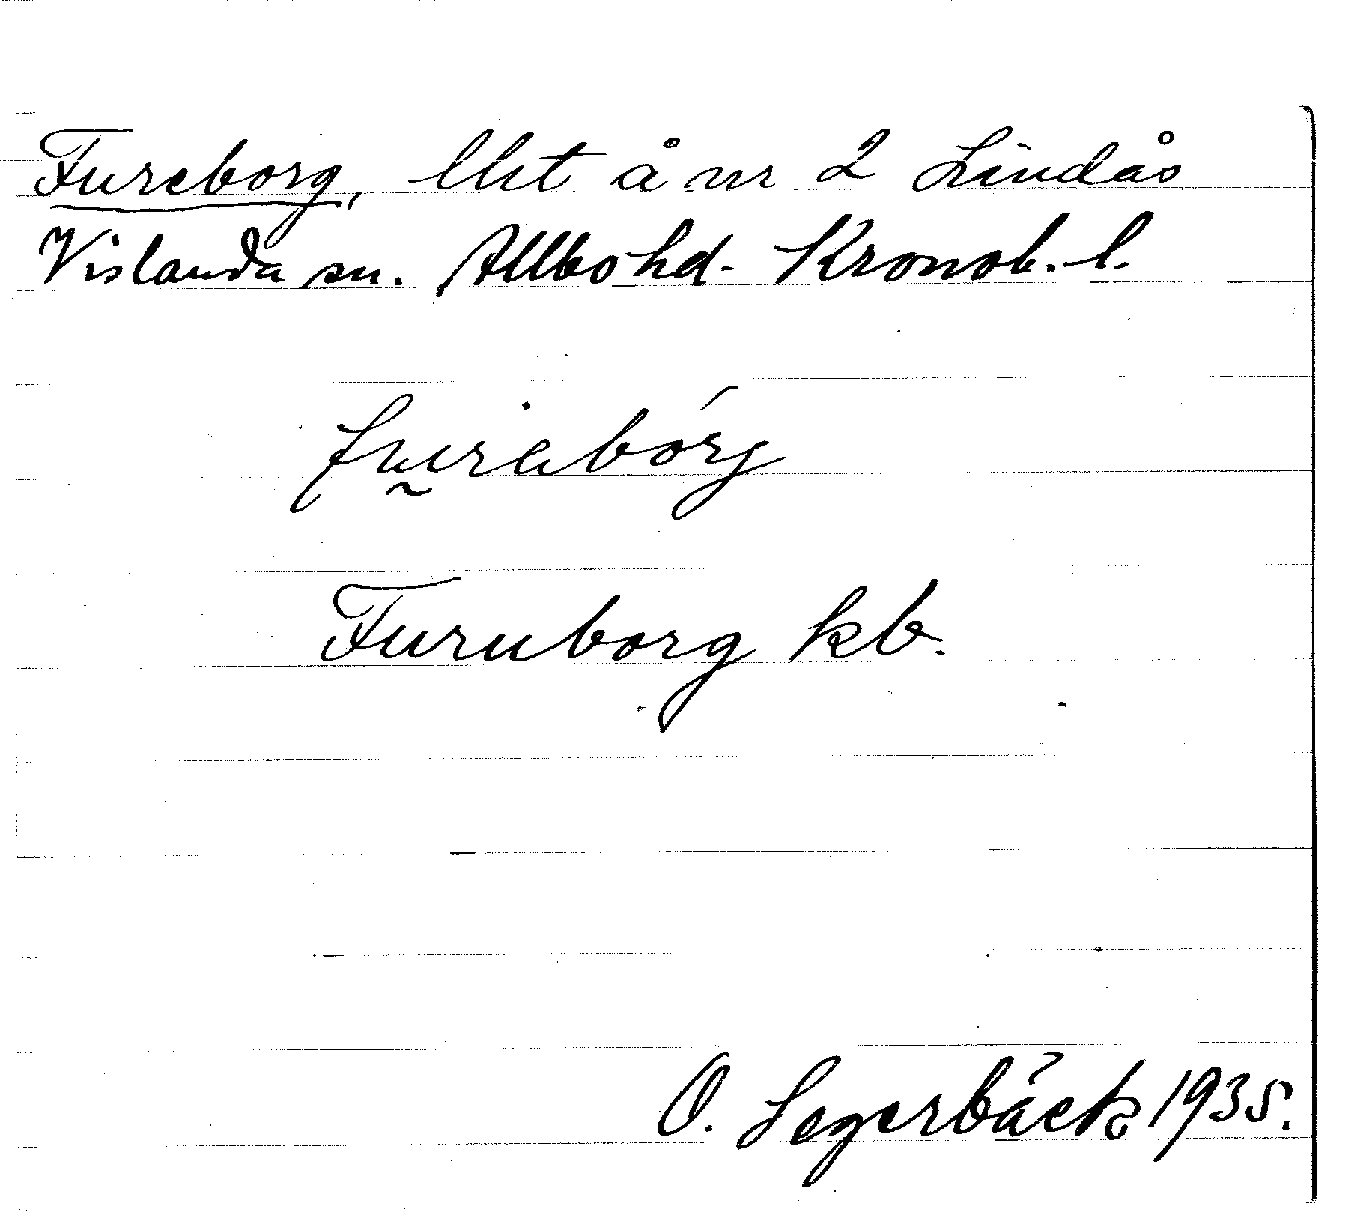 Fureborg, lht å nr 2 Lindås
Vislanda sn. Allbo hd. Kronob. l.
furabórg
Furuborg kb.
O. Segerbäck 1935.